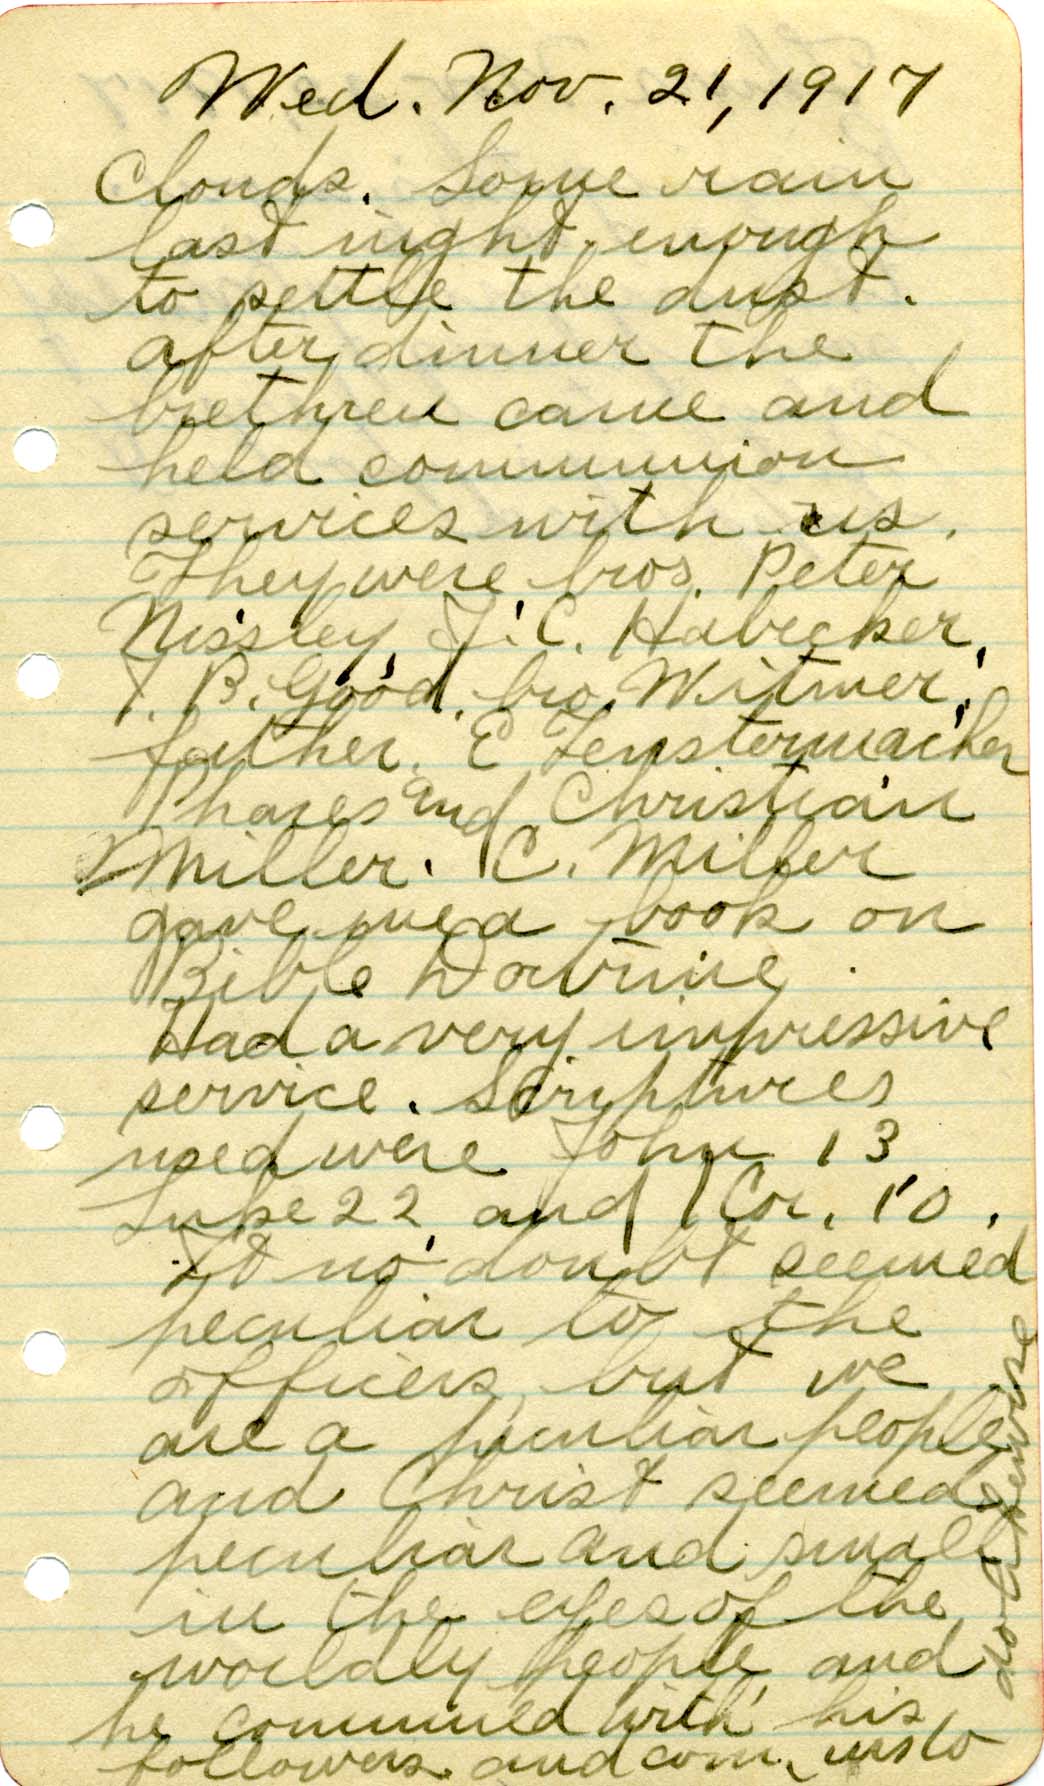 Wed. Nov. 21, 1917
Clouds. Some rain
last night, enough
to settle the dust.
after dinner the
brethren came and
held communion
services with us.
They were bros. Peter
Nissley, J. C. Habecker,
I. B. Good, bro. Witmer,
father, E Fenstermacher
Phares and Christian
Miller. C. Miller
gave me a book on
Bible Doctrine.
Had a very impressive
service. Scriptures
used were John 13
Luke 22 and 1 Cor. 10.
It no doubt seemed
peculiar to the
officers but we
are a peculiar people
and Christ seemed
peculiar and small
in the eyes of the
worldly people and
he communed with his
followers and com. us to
do likewise